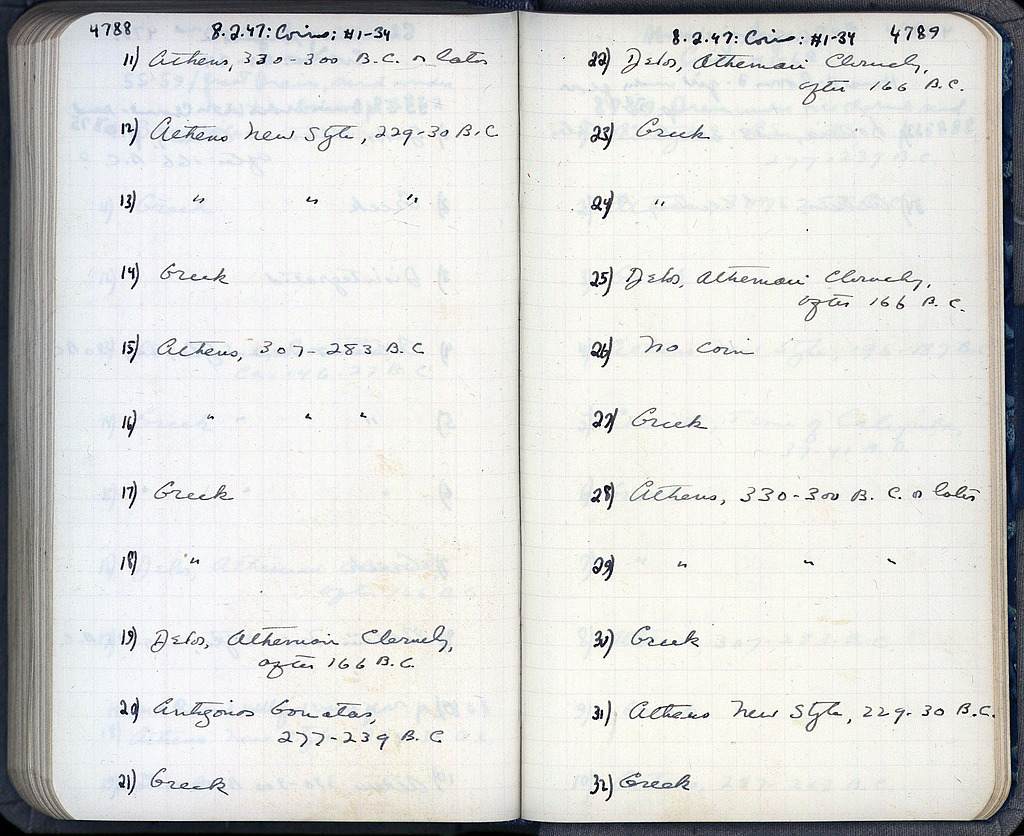 4788 8.2.47: Coins: #1-34
11) Athens, 330-300 B.C. or later
12) Athens New Style, 229-30 B.C.
13) " " "
14) Greek
15) Athens, 307-283 B.C
16) " " "
17) Greek
18) "
19) Delos, Athenian Cleruchy,
after 166 B.C.
20) Antigonos Gonatas,
277-239 B.C
21) Greek
8.2.47: Coins: #1-34 4789
22) Delos, Athenian Cleruchy,
after 166 B.C.
23) Greek
24) "
25) Delos, Athenian Cleruchy,
after 166 B.C.
26) No coin
27) Greek
28) Athens, 330-300 B.C. or later
29) " " "
30) Greek
31) Athens New Style, 229-30 B.C.
32) Greek